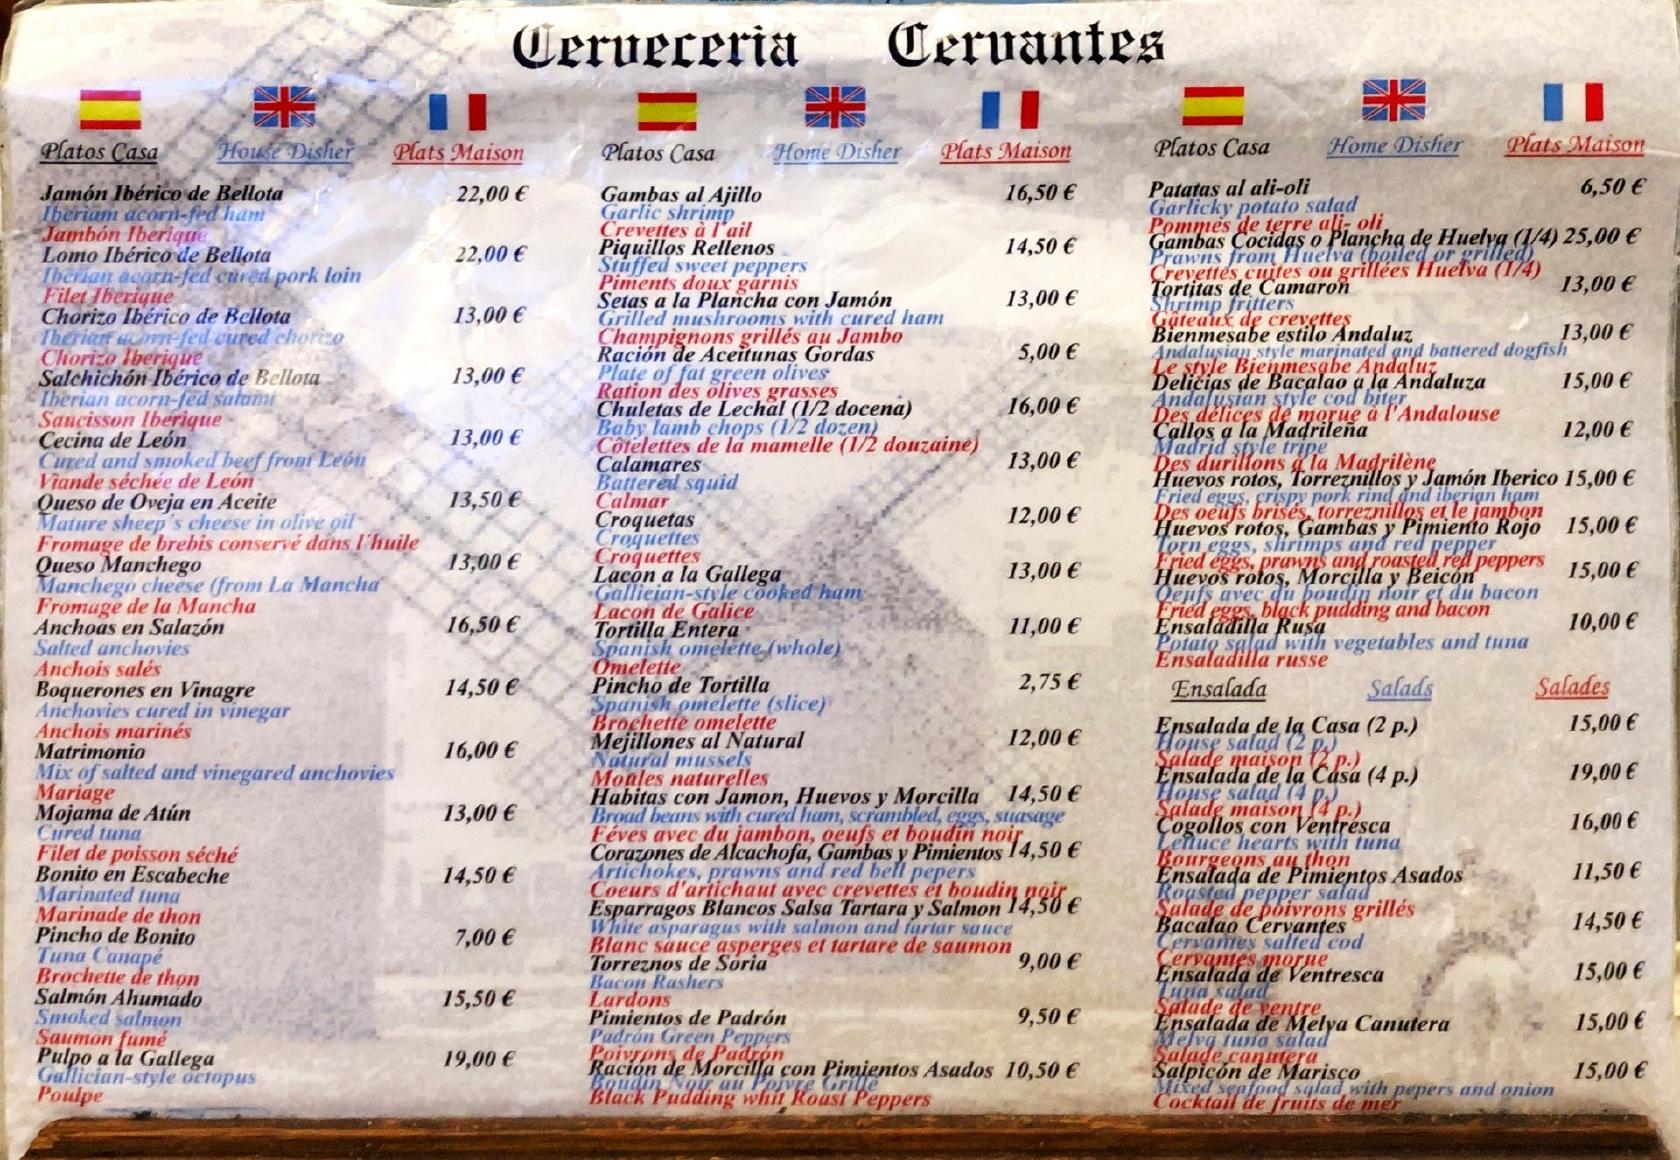 Cerveceria Cervantes
Platos Casa House Disher Plats Maison
Jamón Ibérico de Bellota 22,00 €
Iberiam acorn-fed ham
Jambón Iberique
Lomo Ibérico de Bellota 22,00 €
Iberian acorn-fed cured pork loin
Filet Iberique
Chorizo Ibérico de Bellota 13,00 €
Iberian acorn-fed cured chorizo
Chorizo Iberique
Salchichón Ibérico de Bellota 13,00 €
Iberian acorn-fed salami
Saucisson Iberique
Cecina de León 13,00 €
Cured and smoked beef from León
Viande séchée de León
Queso de Oveja en Aceite 13,50 €
Mature sheep's cheese in olive oil
Fromage de brebis conservé dans l'huile
Queso Manchego 13,00 €
Manchego cheese (from La Mancha
Fromage de la Mancha
Anchoas en Salazón 16,50 €
Salted anchovies
Anchois salés
Boquerones en Vinagre 14,50 €
Anchovies cured in vinegar
Anchois marinés
Matrimonio 16,00 €
Mix of salted and vinegared anchovies
Mariage
Mojama de Atún 13,00 €
Cured tuna
Filet de poisson séché
Bonito en Escabeche 14,50 €
Marinated tuna
Marinade de thon
Pincho de Bonito 7,00 €
Tuna Canapé
Brochette de thon
Salmón Ahumado 15,50 €
Smoked salmon
Saumon fumé
Pulpo a la Gallega 19,00 €
Gallician-style octopus
Poulpe
Platos Casa Home Disher Plats Maison
Gambas al Ajillo 16,50 €
Garlic shrimp
Crevettes à l'ail
Piquillos Rellenos 14,50 €
Stuffed sweet peppers
Piments doux garnis
Setas a la Plancha con Jamón 13,00 €
Grilled mushrooms with cured ham
Champignons grillés au Jambo
Ración de Aceitunas Gordas 5,00 €
Plate of fat green olives
Ration des olives grasses
Chuletas de Lechal (1/2 docena) 16,00 €
Baby lamb chops (1/2 dozen)
Côtelettes de la mamelle (1/2 douzaine)
Calamares 13,00 €
Battered squid
Calmar
Croquetas 12,00 €
Croquettes
Croquettes
Lacon a la Gallega 13,00 €
Gallician-style cooked ham
Lacon de Galice
Tortilla Entera 11,00 €
Spanish omelette (whole)
Omelette
Pincho de Tortilla 2,75 €
Spanish omelette (slice)
Brochette omelette
Mejillones al Natural 12,00 €
Natural mussels
Moules naturelles
Habitas con Jamon, Huevos y Morcilla 14,50 €
Broad beans with cured ham, scrambled, eggs, suasage
Féves avec du jambon, oeufs et boudin noir
Corazones de Alcachofa, Gambas y Pimientos 14,50 €
Artichokes, prawns and red bell pepers
Coeurs d'artichaut avec crevettes et boudin noir
Esparragos Blancos Salsa Tartara y Salmon 14,50 €
White asparagus with salmon and tartar sauce
Blanc sauce asperges et tartare de saumon
Torreznos de Soria 9,00 €
Bacon Rashers
Lardons
Pimientos de Padrón 9,50 €
Padrón Green Peppers
Poivrons de Padrón
Ración de Morcilla con Pimientos Asados 10,50 €
Boudin Noir au Poivre Grillé
Black Pudding whit Roast Peppers
Platos Casa Home Disher Plats Maison
Patatas al ali-oli 6,50 €
Garlicky potato salad
Pommes de terre ali- oli
Gambas Cocidas o Plancha de Huelva (1/4) 25,00 €
Prawns from Huelva (boiled or grilled)
Crevettes cuites ou grillées Huelva (1/4)
Tortitas de Camaron 13,00 €
Shrimp fritters
Gâteaux de crevettes
Bienmesabe estilo Andaluz 13,00 €
Andalusian style marinated and battered dogfish
Le style Bienmesabe Andaluz
Delicias de Bacalao a la Andaluza 15,00 €
Andalusian style cod biter
Des délices de morue à l'Andalouse
Callos a la Madrileña 12,00 €
Madrid style tripe
Des durillons à la Madrilène
Huevos rotos, Torreznillos y Jamón Iberico 15,00 €
Fried eggs, crispy pork rind and iberian ham
Des oeufs brisés, torreznillos et le jambon
Huevos rotos, Gambas y Pimiento Rojo 15,00 €
Torn eggs, shrimps and red pepper
Fried eggs, prawns and roasted red peppers
Huevos rotos, Morcilla y Beicon 15,00 €
Oeufs avec du boudin noir et du bacon
Fried eggs, black pudding and bacon
Ensaladilla Rusa 10,00 €
Potato salad with vegetables and tuna
Ensaladilla russe
Ensalada Salads Salades
Ensalada de la Casa (2 p.) 15,00 €
House salad (2 p.)
Salade maison (2 p.)
Ensalada de la Casa (4 p.) 19,00 €
House salad (4 p.)
Salade maison (4 p.)
Cogollos con Ventresca 16,00 €
Lettuce hearts with tuna
Bourgeons au thon
Ensalada de Pimientos Asados 11,50 €
Roasted pepper salad
Salade de poivrons grillés
Bacalao Cervantes 14,50 €
Cervantes salted cod
Cervantes morue
Ensalada de Ventresca 15,00 €
Tuna salad
Salade de ventre
Ensalada de Melva Canutera 15,00 €
Melva tuna salad
Salade canutera
Salpicón de Marisco 15,00 €
Mixed seafood salad with pepers and onion
Cocktail de fruits de mer